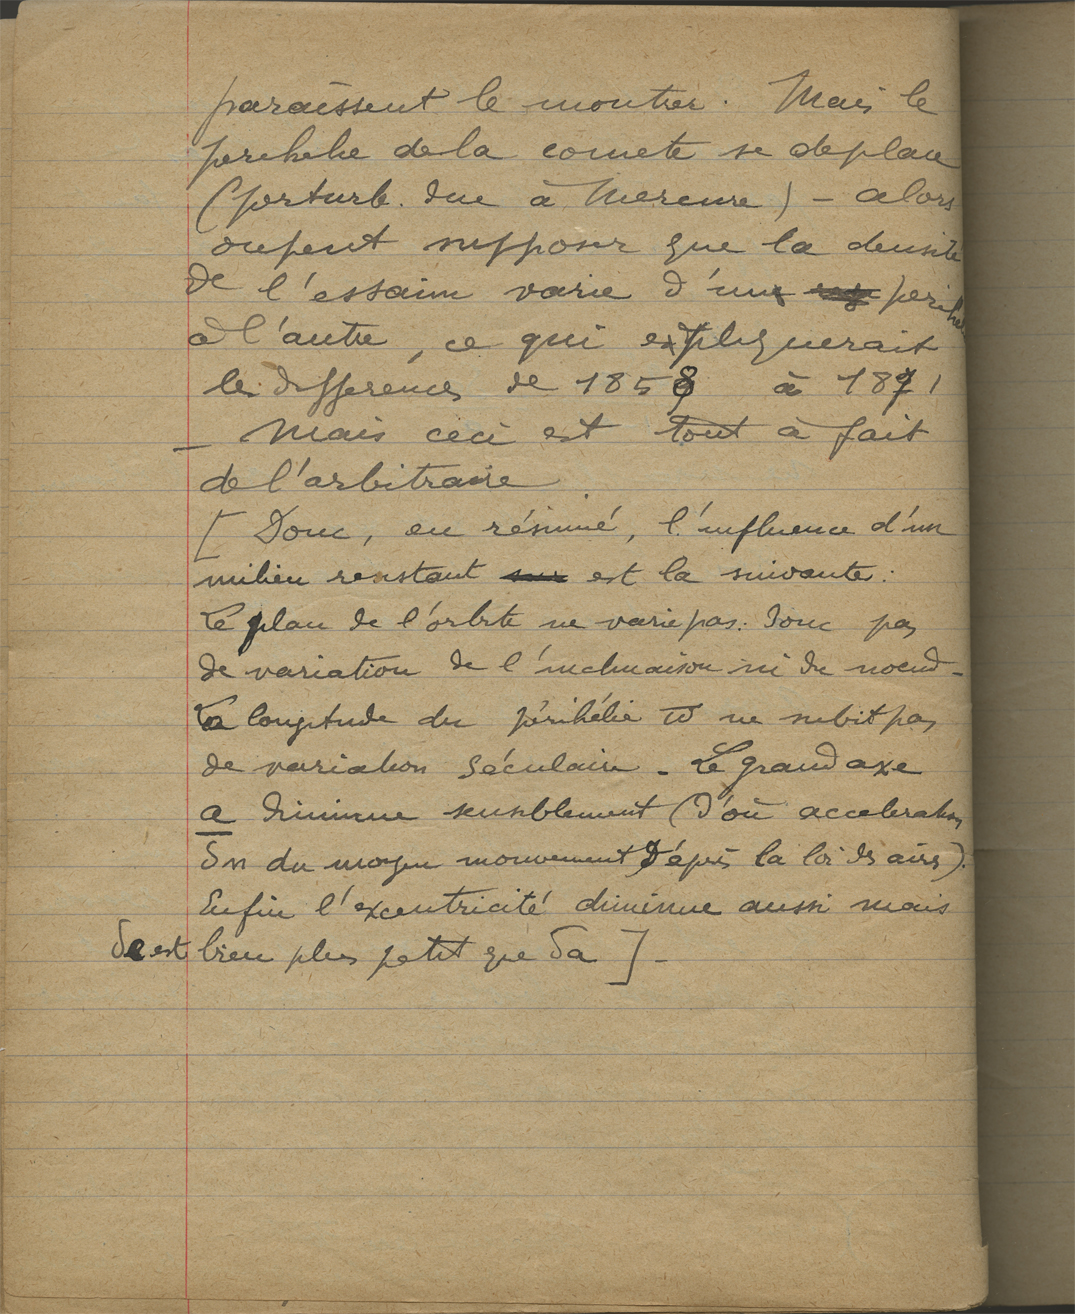 paraissent le montrer. Mais le
perihelie de la comete se deplace
(perturb. due à Mercure) – alors
on peut supposer que la densité
de l'essaim varie d'un perihelie
à l'autre, ce qui expliquerait
les differences de 1858 à 1871
– Mais ceci est tout à fait
de l'arbitraire
[ Donc, en résumé, l'influence d'un
milieu resistant est la suivante:
Le plan de l'orbite ne varie pas. Donc pas
de variation de l'inclinaison ni du noeud –
La longitude du périhélie ϖ ne subit pas
de variation séculaire – Le grand axe
a diminue sensiblement (d'où acceleration
δn du moyen mouvement d'après la loi des aires).
Enfin l'excentricité diminue aussi mais
δe est bien plus petit que δa ] –